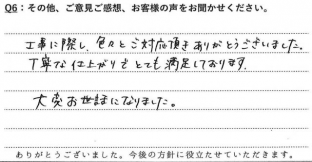 Q6：その他、ご意見ご感想、お客様の声をお聞かせください。
工事に際し、色々とご対応頂きありがとうございました。
丁寧な仕上がりもとても満足しております。
大変お世話になりました。
ありがとうございました。今後の方針に役立たせていただきます。